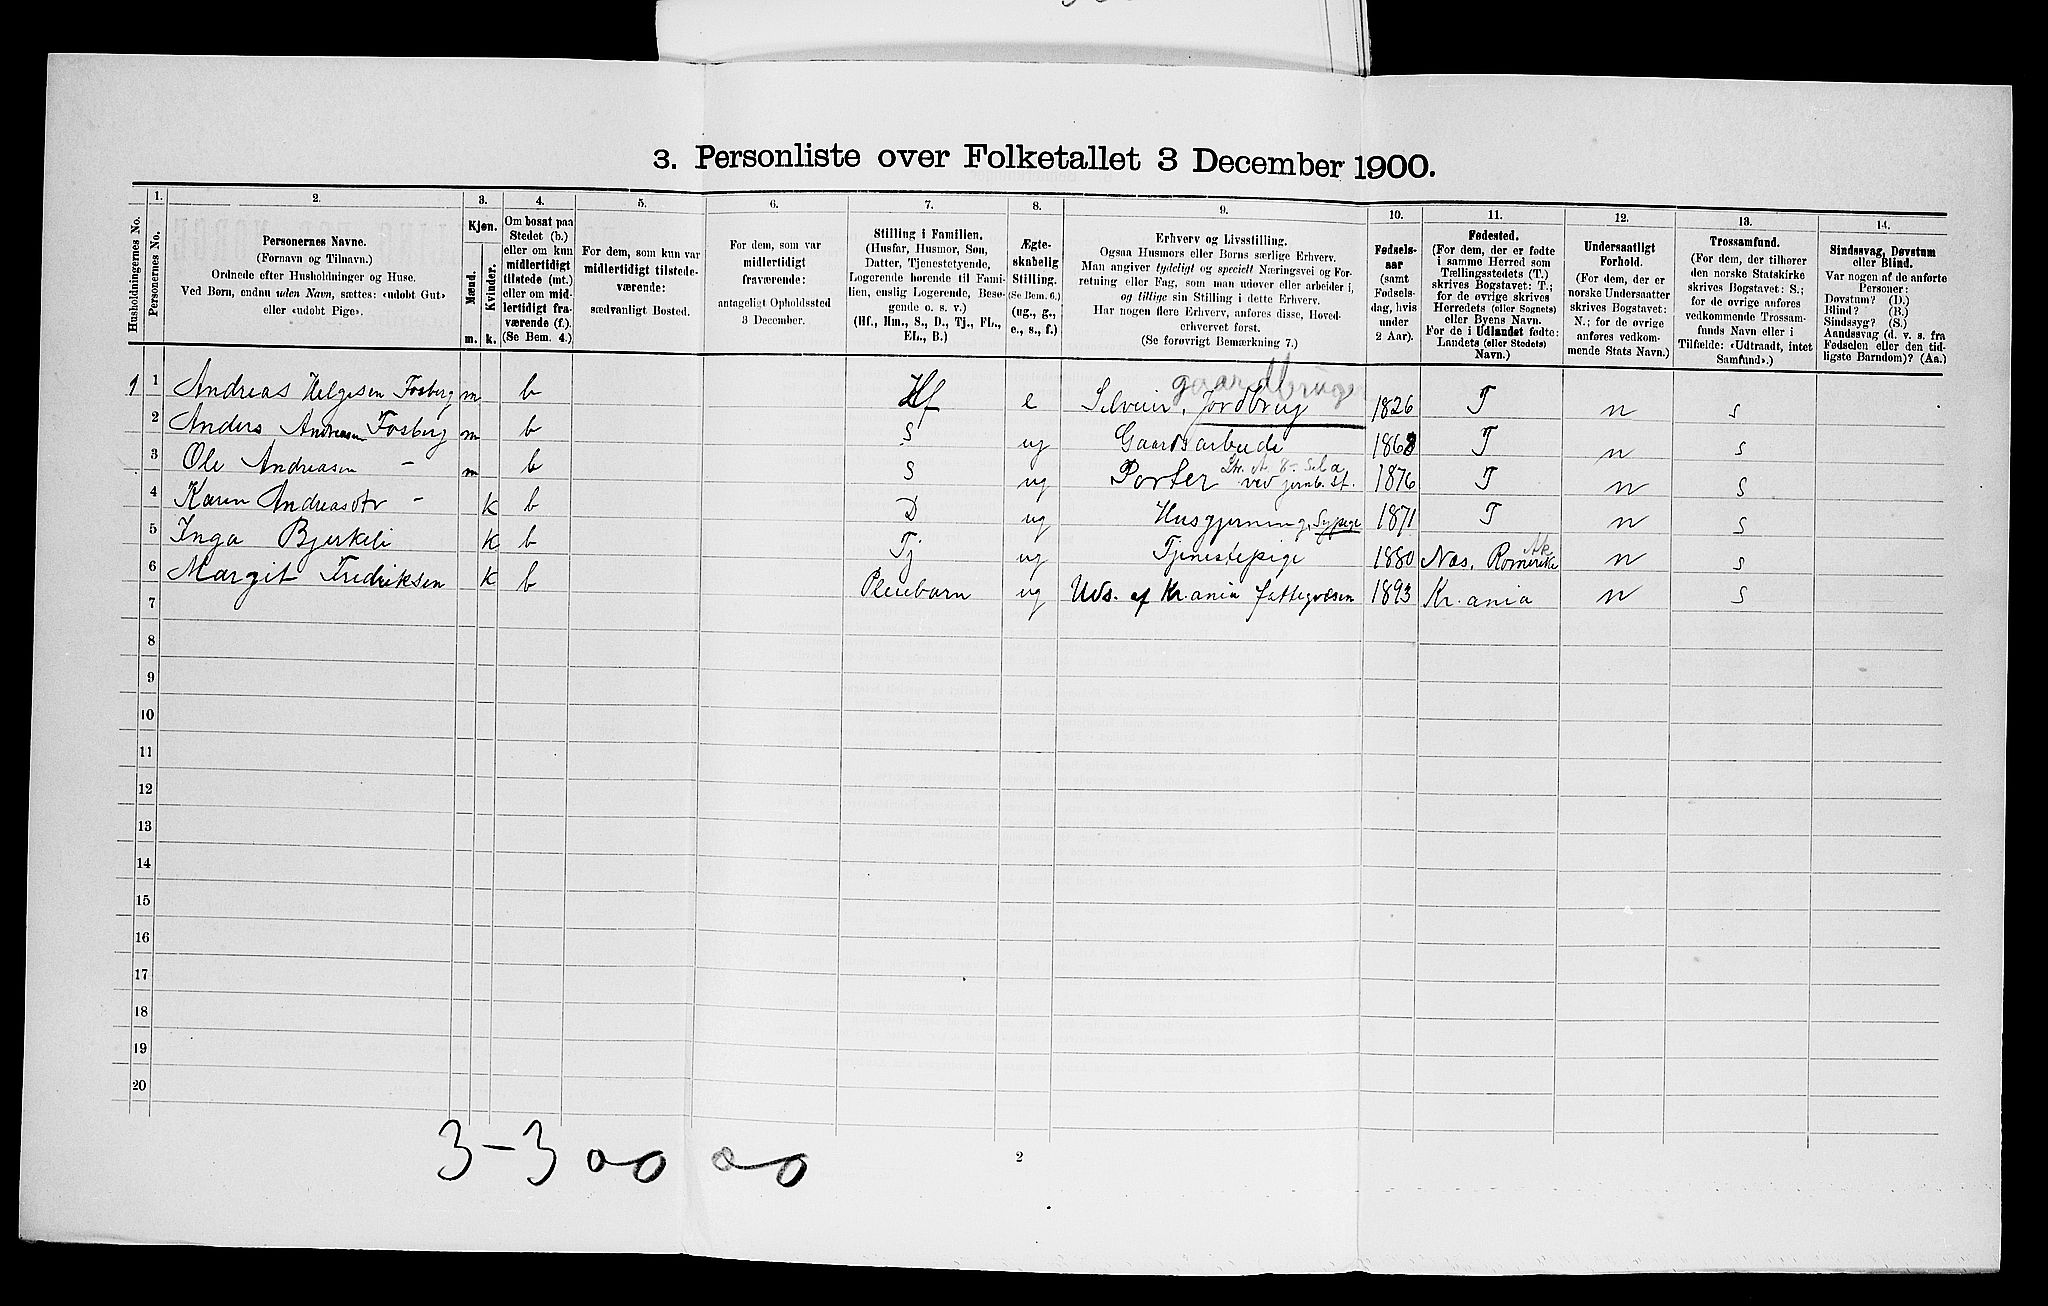 3. Personliste over Folketallet 3 December 1900.
Husholdningernes No.
1.
Personernes No.
2.
Personernes Navne.
(Fornavn og Tilnavn.)
Ordnede efter Husholdninger og Huse.
Ved Børn, endnu uden Navn, sættes: «udøbt Gut»
eller «udøbt Pige».
3.
Kjøn.
Mænd.
Kvinder.
m.
k.
4.
Om bosat paa
Stedet (b.)
eller om kun
midlertidigt
tilstede (mt.)
eller om mid-
lertidigt fra-
værende (f.).
(Se Bem. 4.)
5.
For dem, som kun var
midlertidigt tilstede-
værende:
sædvanligt Bosted.
6.
For dem, som var
midlertidigt
fraværende:
antageligt Opholdssted
3 December.
7.
Stilling i Familien.
(Husfar, Husmor, Søn,
Datter, Tjenestetyende,
Logerende hørende til Fami-
lien, enslig Logerende, Besø-
gende o. s. v.)
(Hf., Hm., S., D., Tj., FL.,
EL., B.)
8.
Ægte-
skabelig
Stilling.
(Se Bem. 6.)
(ug., g.,
e., s., f.)
9.
Erhverv og Livsstilling.
Ogsaa Husmors eller Børns særlige Erhverv.
Man angiver tydeligt og specielt Næringsvei og For-
retning eller Fag, som man udøver eller arbeider i,
og tillige sin Stilling i dette Erhverv.
Har nogen flere Erhverv, anføres disse, Hoved-
erhvervet først.
(Se forøvrigt Bemærkning 7.)
10.
Fødsels-
aar
(samt
Fødsels-
dag, hvis
under
2 Aar).
11.
Fødested.
(For dem, der er fødte
i samme Herred som
Tællingsstedets (T.)
skrives Bogstavet: T.;
for de øvrige skrives
Herredets (eller Sognets)
eller Byens Navn.
For de i Udlandet fødte:
Landets (eller Stedets)
Navn.)
12.
Undersaatligt
Forhold.
(For dem, der er
norske Undersaatter
skrives Bogstavet:
N.; for de øvrige
anføres vedkom-
mende Stats Navn.)
13.
Trossamfund.
(For dem, der tilhører
den norske Statskirke
skrives Bogstavet: S.;
for de øvrige anføres
vedkommende Trossam-
funds Navn eller i
Tilfælde: «Udtraadt, intet
Samfund».)
14.
Sindssvag, Døvstum
eller Blind.
Var nogen af de anførte
Personer:
Døvstum? (D.)
Blind? (B.)
Sindssyg? (S.)
Aandssvag (d. v. s. fra
Fødselen eller den tid-
ligste Barndom)? (Aa.)
gaardbruger
1 1 Andreas Helgesen Fosberg m b Hf e Selveier, Jordbrug 1826 T n s
2 Anders Andreasen Fosberg m b S ug Gaardsarbeide 1868 T n s
3 Ole Andreasen - m b S ug Porter ved jernb. St. 1876 T n S
4 Karen Andreasdtr - k b D ug Husgjerning, Sypige 1871 T n S
5 Inga Bjerkeli k b Tj ug Tjenestepige 1880 Næs, Romerike Ak n S
6 Margit Fredriksen k b Pleiebarn ug Uds. af Kr.ania fattigvæsen 1893 Kr.ania n S
7
8
9
10
11
12
13
14
15
16
17
18
19
20
3-3 00 00
2